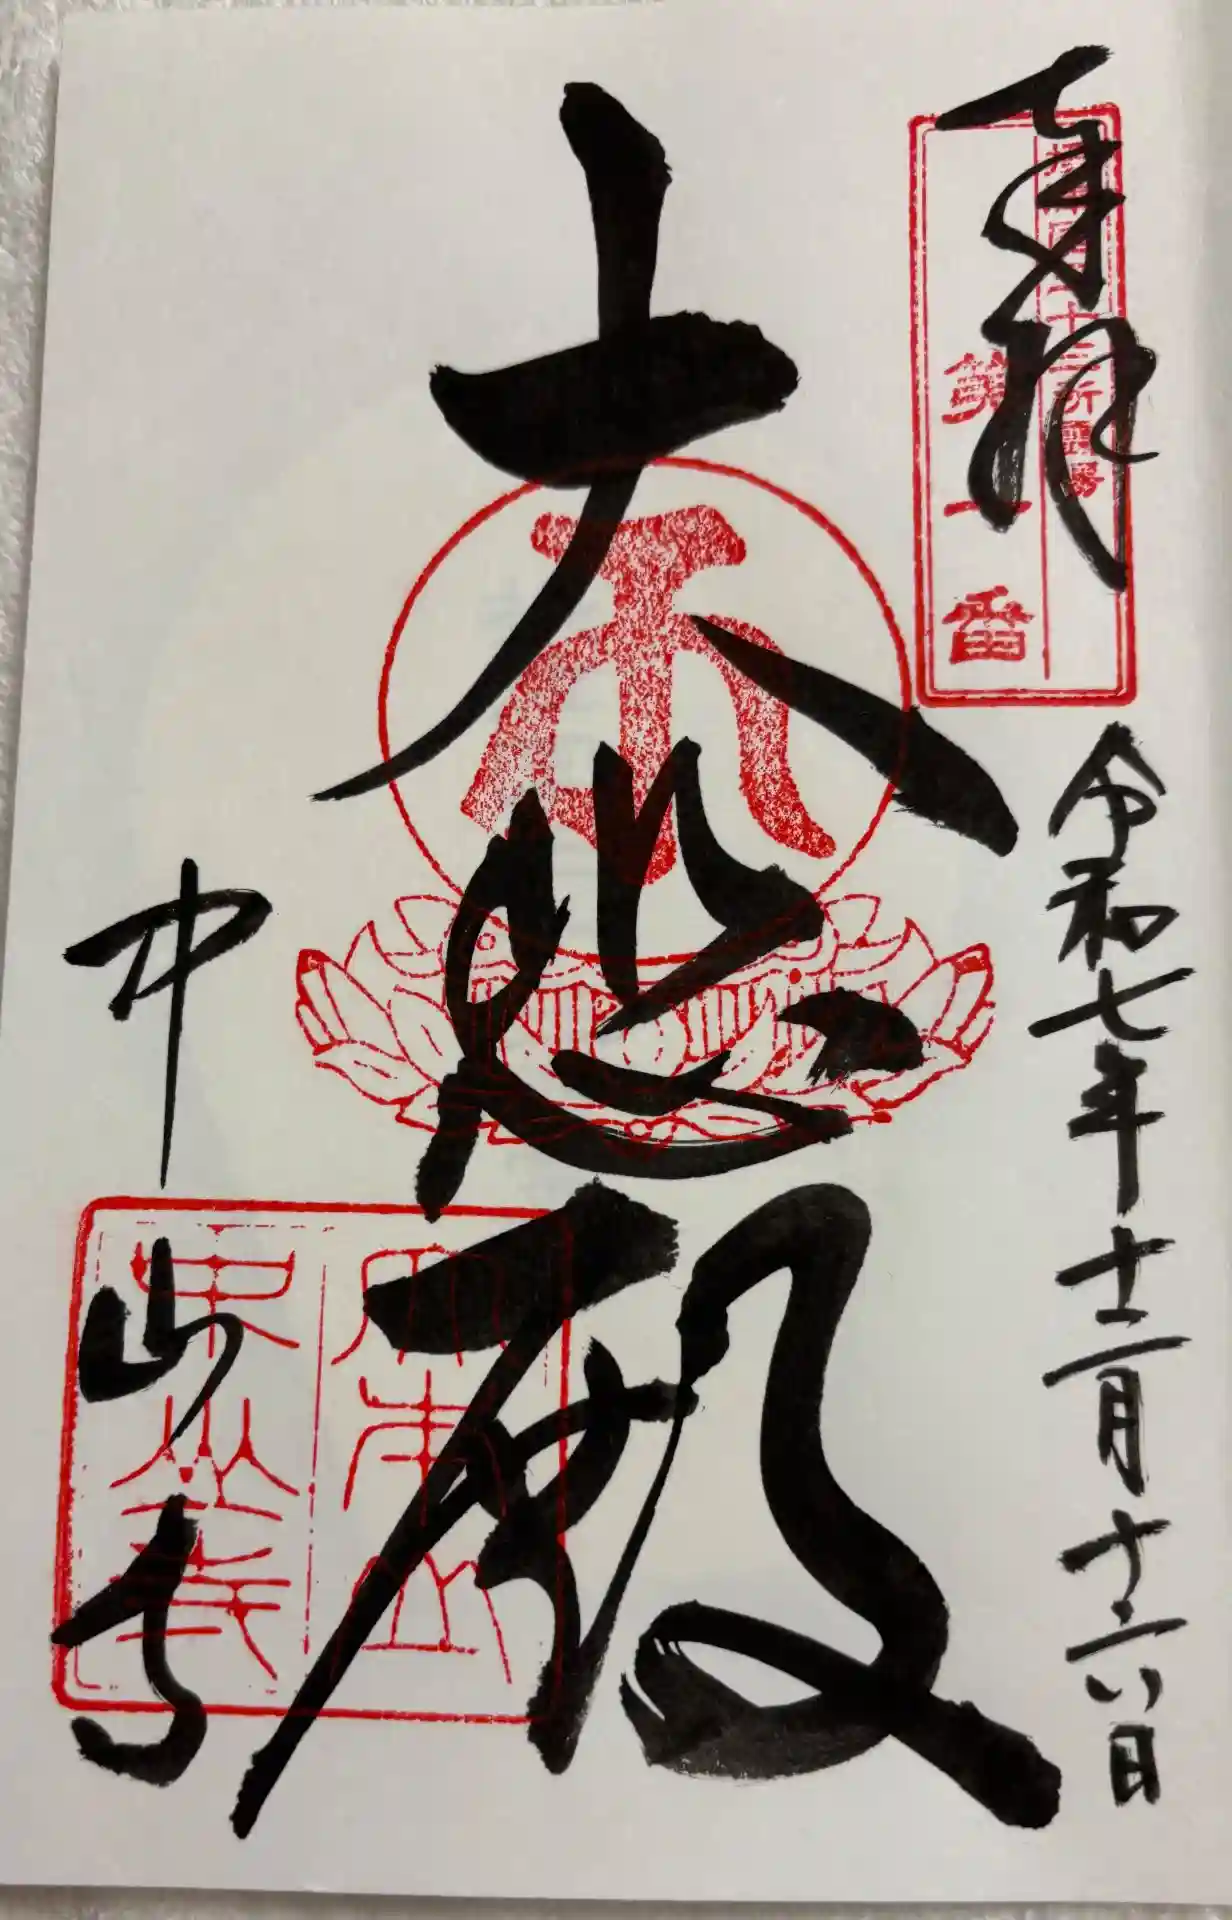 奉拝
摂津国三十三所霊場
第一番
令和七年十二月十六日
大悲殿
大本山
中山寺
中山寺